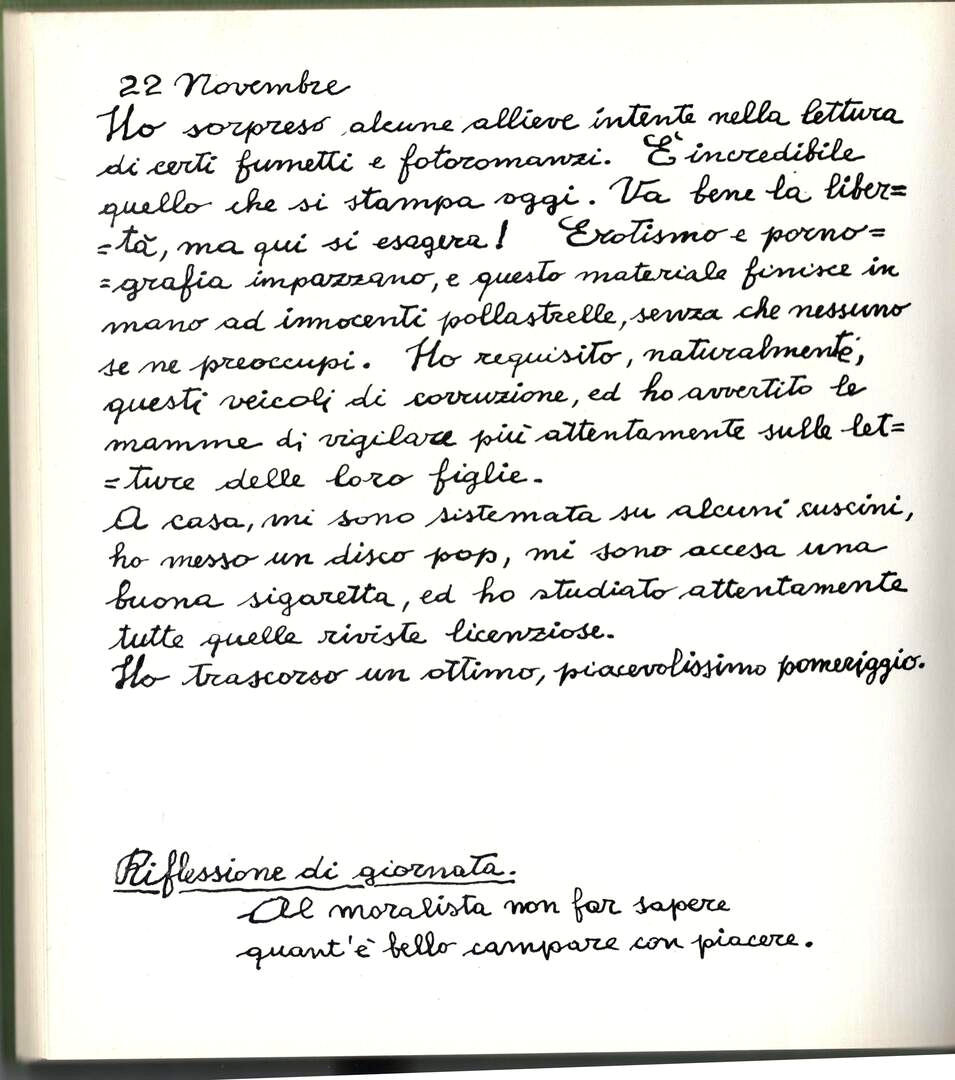 22 Novembre
Ho sorpreso alcune allieve intente nella lettura
di certi fumetti e fotoromanzi. È incredibile
quello che si stampa oggi. Va bene la liber=
=tà, ma qui si esagera! Erotismo e porno=
=grafia impazzano, e questo materiale finisce in
mano ad innocenti pollastrelle, senza che nessuno
se ne preoccupi. Ho requisito, naturalmente,
questi veicoli di corruzione, ed ho avvertito le
mamme di vigilare più attentamente sulle let=
=ture delle loro figlie.
A casa, mi sono sistemata su alcuni cuscini,
ho messo un disco pop, mi sono accesa una
buona sigaretta, ed ho studiato attentamente
tutte quelle riviste licenziose.
Ho trascorso un ottimo, piacevolissimo pomeriggio.
Riflessione di giornata.
Al moralista non far sapere
quant'è bello campare con piacere.